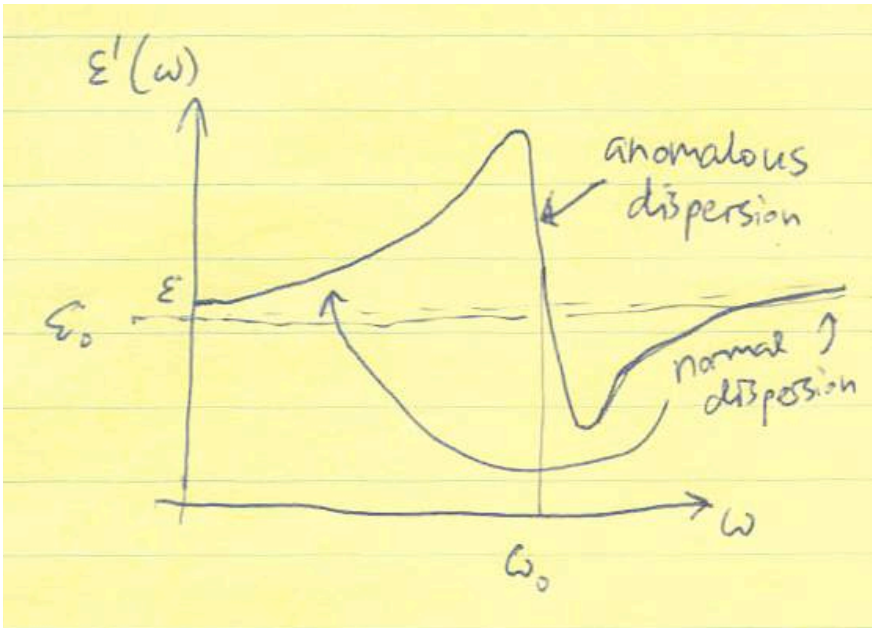 ε'(ω)
anomalous
dispersion
ε
ε₀
normal
dispersion
ω
ω₀